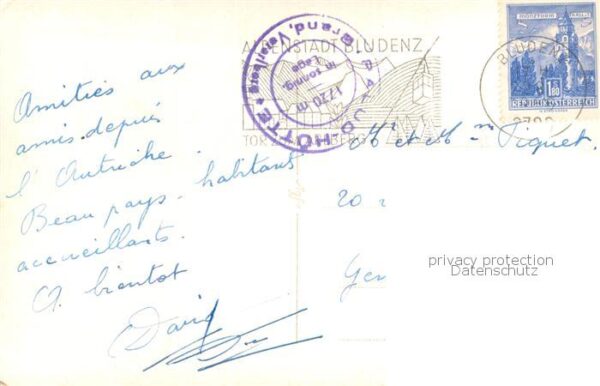 Amitiés aux
amis depuis
l'Autriche.
Beau pays - habitants
accueillants.
A bientot
David
ALPENSTADT BLUDENZ
HÜTTE
Brand, Vorarlberg
1770 m
TOR
BLUDENZ
REPUBLIK ÖSTERREICH
1.80
Mr et Mme Piquet
20
Gen
privacy protection
Datenschutz